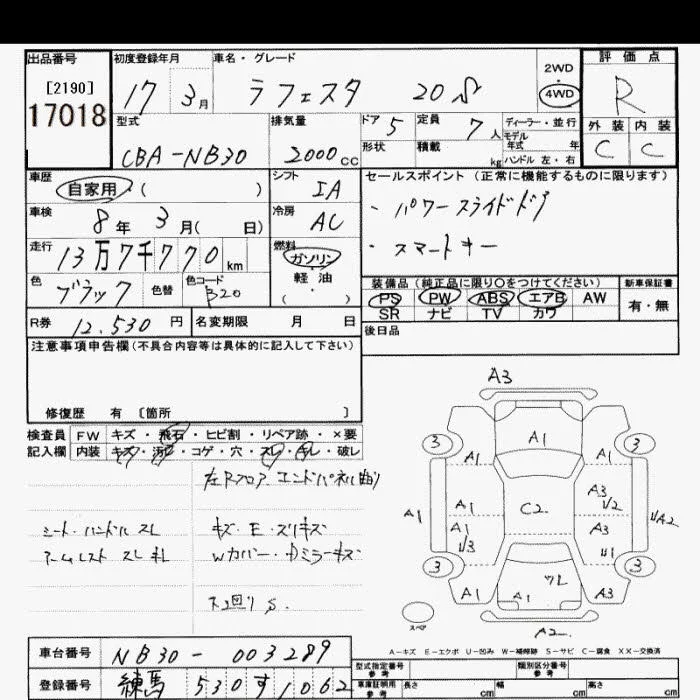 出品番号
[2190]
17018
初度登録年月
17 3月
車名・グレード
ラフェスタ 20S
2WD
4WD
評価点
R
外装 内装
C C
型式
CBA-NB30
排気量
2000cc
ドア 5
形状
定員 7人
積載 kg
ディーラー・並行
モデル年式 年
ハンドル 左・右
車歴
自家用 ( )
シフト
IA
車検
8年 3月( 日)
冷房
AC
走行
13万7千770km
燃料
ガソリン
軽油
( )
色
ブラック
色替
色コード
B20
セールスポイント (正常に機能するものに限ります)
・パワースライドドア
・スマートキー
装備品 (純正品に限り○をつけてください)
PS PW ABS エアB AW
SR ナビ TV カワ
新車保証書
有・無
R券 12,530円
名変期限 月 日
後日品
注意事項申告欄(不具合内容等は具体的に記入して下さい)
修復歴 有 〔箇所 〕
検査員記入欄
FW キズ・飛石・ヒビ割・リペア跡・×要
内装 キズ・汚れ・コゲ・穴・スレ・キレ・破レ
左Rフロア エンドパネル曲り
シート・ハンドル スレ
キズ・E・スリキズ
アームレスト スレ キレ
Wカバー・ミラーキズ
下回り S.
A3
3 3
A1
A1 A1
A1 A1 A3 1/2 A2
C2
A1 1/3 A3
3 3
A1 A1 A3
A2
スペア
A-キズ E-エクボ U-凹み W-補修跡 S-サビ C-腐食 XX-交換済
車台番号
NB30-003289
登録番号
練馬 530 す 1062
型式指定番号 参考
類別区分番号 参考
車庫証明用 参考
長さ cm 幅 cm 高さ cm